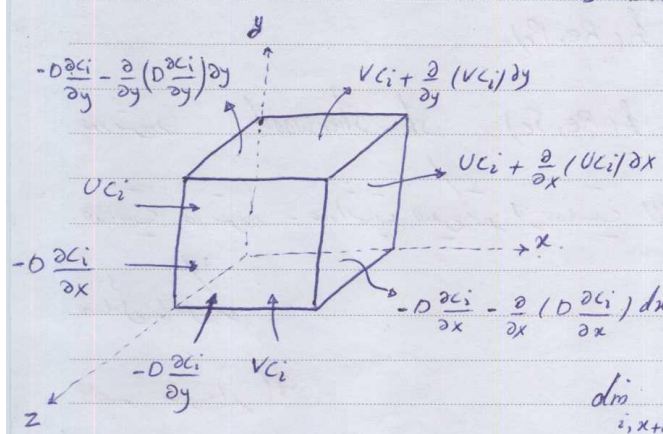 y
-D ∂Ci/∂y - ∂/∂y (D ∂Ci/∂y) ∂y
VCi + ∂/∂y (VCi) ∂y
UCi
UCi + ∂/∂x (UCi) ∂x
x
-D ∂Ci/∂x
-D ∂Ci/∂x - ∂/∂x (D ∂Ci/∂x) dx
-D ∂Ci/∂y
VCi
z
dm i,x+